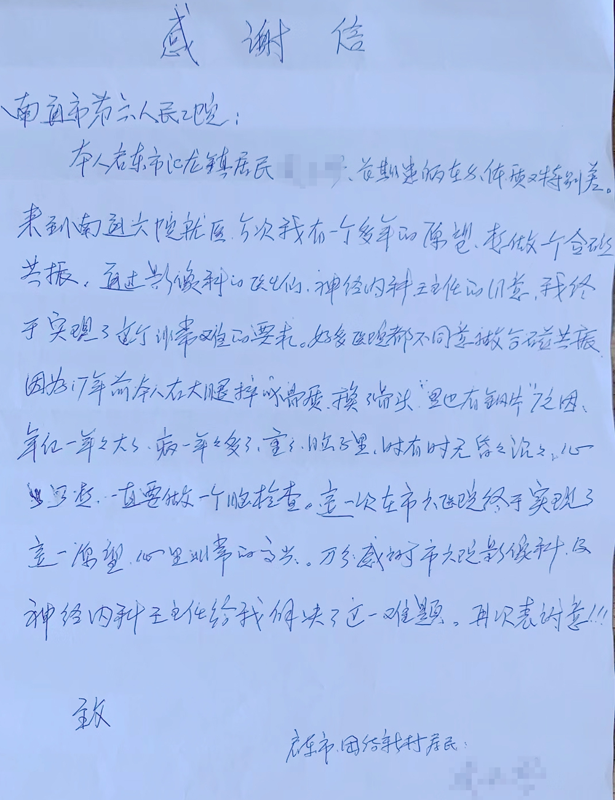 感谢信
南通市第六人民医院:
本人启东市汇龙镇居民 长期患病在身、体质又特别差。
来到南通六院就医,今次我有一个多年的愿望,想做一个合磁
共振,通过影像科的医生们,神经内科王主任的同意,我终
于实现了这个非常难的要求。好多医院都不同意做合磁共振
因为17年前本人右大腿摔 骨质,换了骨头,里也有钢片之因,
年红一年々大了、病一年々多了、重了、脑子里,时有时无昏々沉々,心
里想,一直要做一个脑检查。这一次在市六医院终于实现了
这一愿望,心里非常的高兴。万分感谢市六院影像科,及
神经内科王主任给我解决了这一难题。再次表谢意!!!
致
启东市 新村居民: